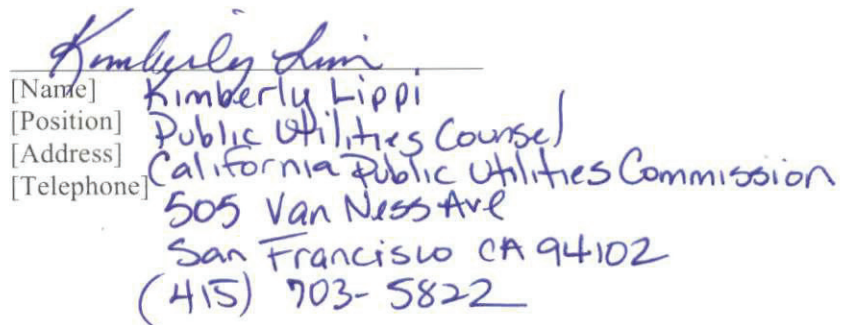 Kimberly Lippi
[Name] Kimberly Lippi
[Position] Public Utilities Counsel
[Address] California Public Utilities Commission
[Telephone] 505 Van Ness Ave
San Francisco CA 94102
(415) 703-5822